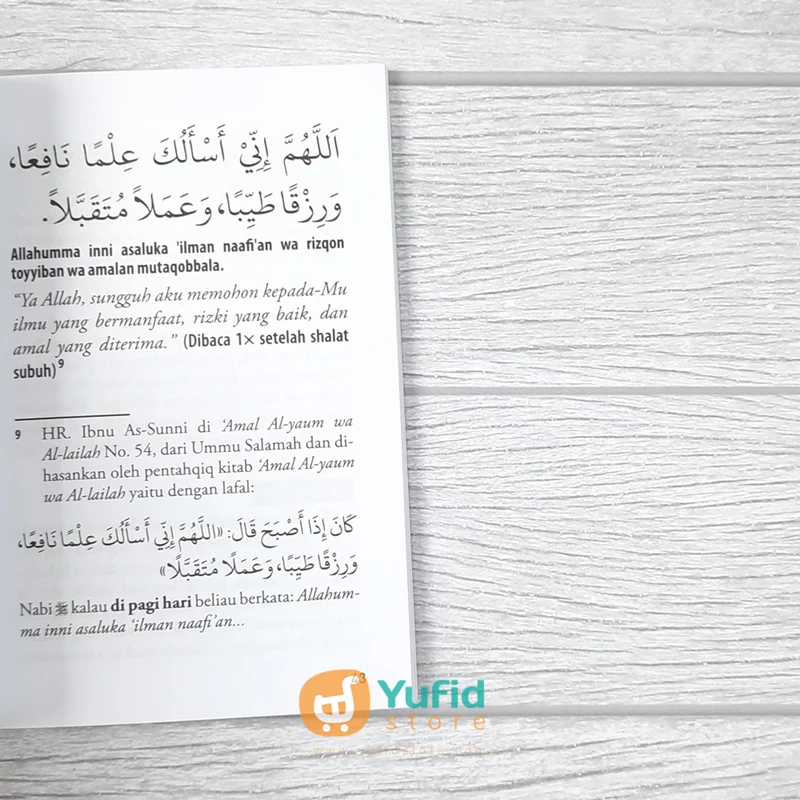 اَللَّهُمَّ إِنِّيْ أَسْأَلُكَ عِلْمًا نَافِعًا،
وَرِزْقًا طَيِّبًا، وَعَمَلاً مُتَقَبَّلاً.
Allahumma inni asaluka 'ilman naafi'an wa rizqon
toyyiban wa amalan mutaqobbala.
“Ya Allah, sungguh aku memohon kepada-Mu
ilmu yang bermanfaat, rizki yang baik, dan
amal yang diterima.” (Dibaca 1× setelah shalat
subuh)9
9 HR. Ibnu As-Sunni di ‘Amal Al-yaum wa
Al-lailah No. 54, dari Ummu Salamah dan di-
hasankan oleh pentahqiq kitab ‘Amal Al-yaum
wa Al-lailah yaitu dengan lafal:
كَانَ إِذَا أَصْبَحَ قَالَ: «اللَّهُمَّ إِنِّي أَسْأَلُكَ عِلْمًا نَافِعًا،
وَرِزْقًا طَيِّبًا، وَعَمَلًا مُتَقَبَّلًا»
Nabi ﷺ kalau di pagi hari beliau berkata: Allahum-
ma inni asaluka ‘ilman naafi’an...
Yufid
store